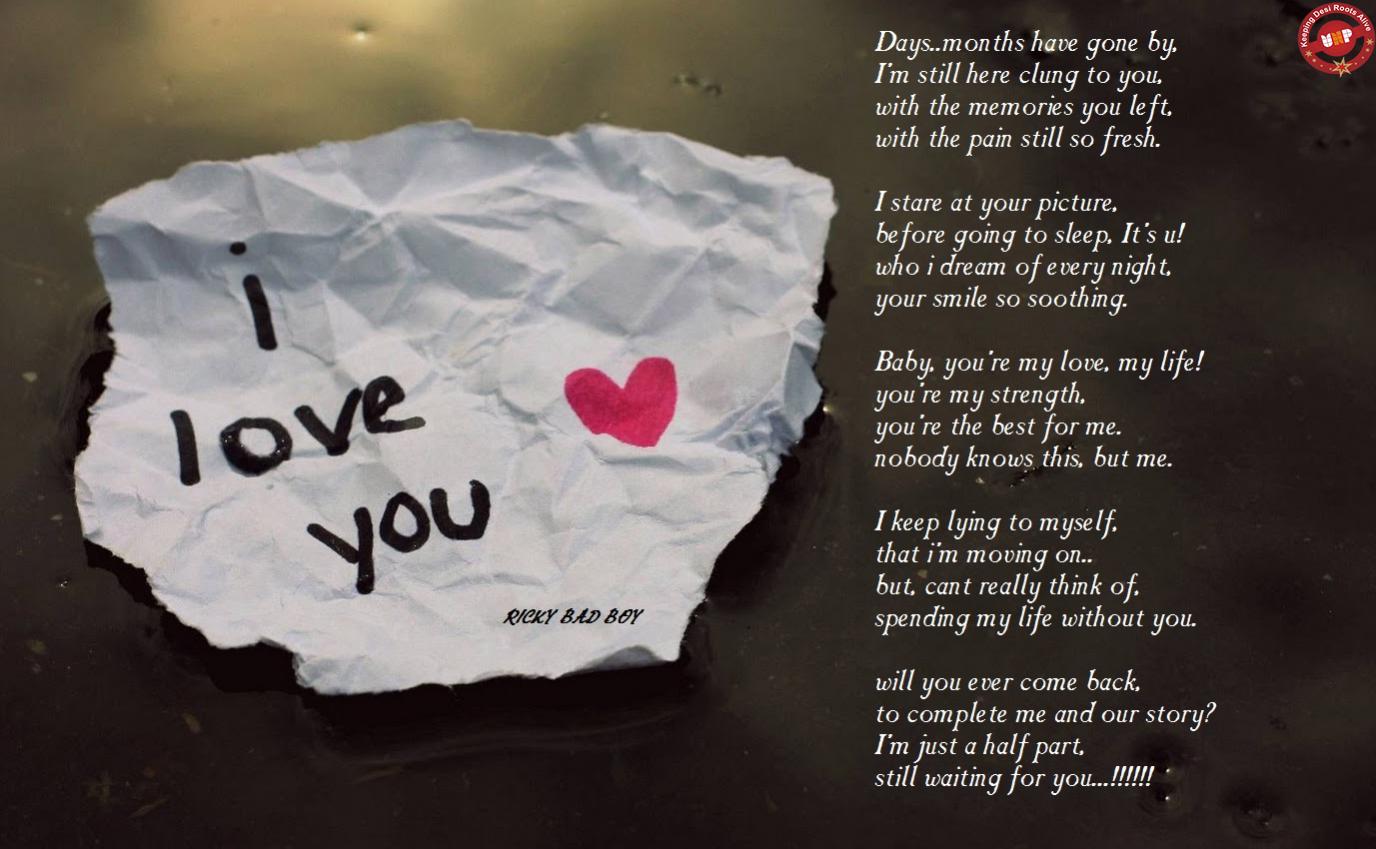 i
love
you
RICKY BAD BOY
Keeping Desi Roots Alive
UNP
Days..months have gone by,
I'm still here clung to you,
with the memories you left,
with the pain still so fresh.
I stare at your picture,
before going to sleep, It's u!
who i dream of every night,
your smile so soothing.
Baby, you're my love, my life!
you're my strength,
you're the best for me.
nobody knows this, but me.
I keep lying to myself,
that i'm moving on..
but, cant really think of,
spending my life without you.
will you ever come back,
to complete me and our story?
I'm just a half part,
still waiting for you...!!!!!!